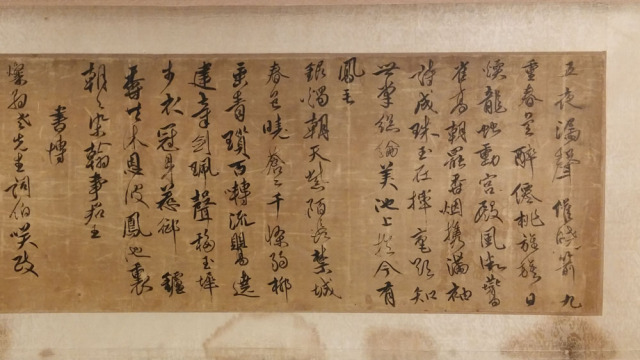 五夜漏聲催曉箭九
重春色醉僊桃旌旗日
煖龍蛇動宮殿風微燕
雀高朝罷香烟携滿袖
詩成珠玉在揮毫欲知
世掌絲綸美池上於今有
鳳毛
銀燭朝天紫陌長禁城
春色曉蒼〻千條弱柳
垂青瑣百囀流鶯遶
建章劍珮聲移玉墀
步衣冠身惹御鑪
香共沐恩波鳳池裏
朝〻染翰事君王
書博
老先生詞伯咲政